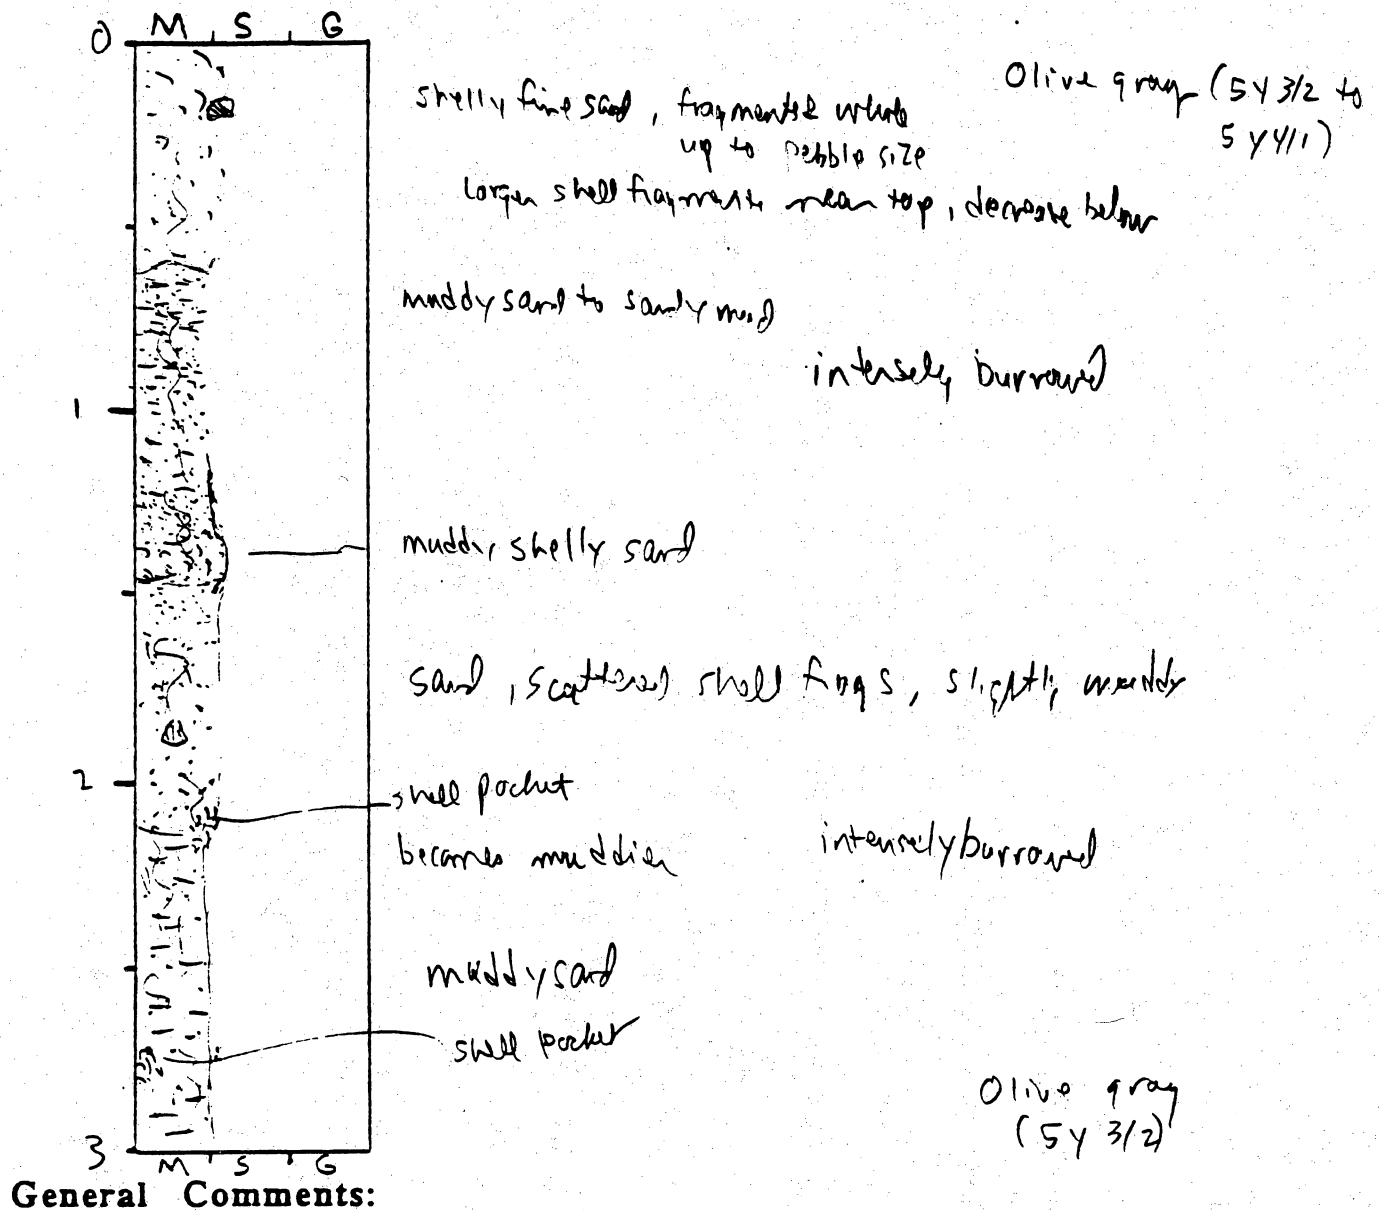 M S G
0
Olive gray (5Y 3/2 to
5Y 4/1)
shelly fine sand, fragments & whole
up to pebble size
larger shell fragments near top, decrease below
muddy sand to sandy mud
intensely burrowed
1
muddy shelly sand
sand, scattered shell frags, slightly muddy
2
shell pocket
becomes muddier
intensely burrowed
muddy sand
shell pocket
Olive gray
(5Y 3/2)
3
M S G
General Comments: